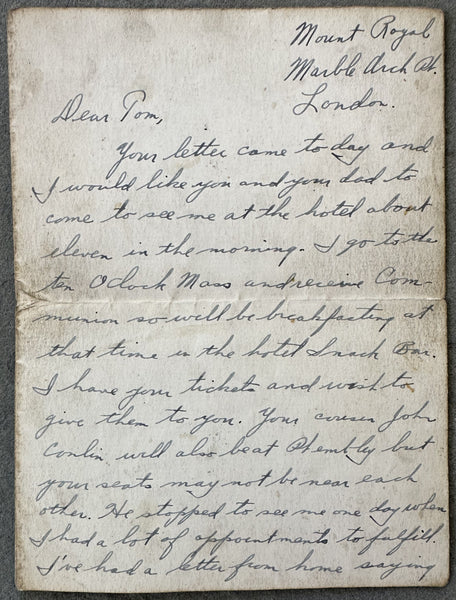 Mount Royal
Marble Arch St.
London.
Dear Tom,
Your letter came to day and
I would like you and your dad to
come to see me at the hotel about
eleven in the morning. I go to the
ten O'clock Mass and receive Com-
munion so will be breakfasting at
that time in the hotel Snack Bar.
I have your tickets and wish to
give them to you. Your cousin John
Conlin will also be at Wembly but
your seats may not be near each
other. He stopped to see me one day when
I had a lot of appointments to fulfill.
I've had a letter from home saying